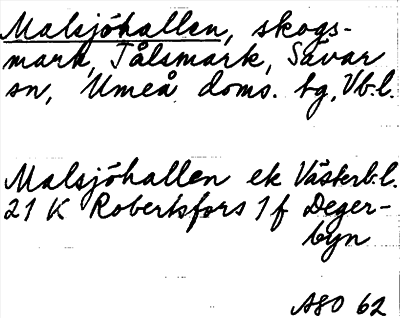 Malsjöhallen, skogs-
mark, Tålsmark, Sävar
sn, Umeå doms. tg, Vb.l.
Malsjöhallen ek Västerb.l.
21 K Robertsfors 1 f Deger-
byn
ASO 62